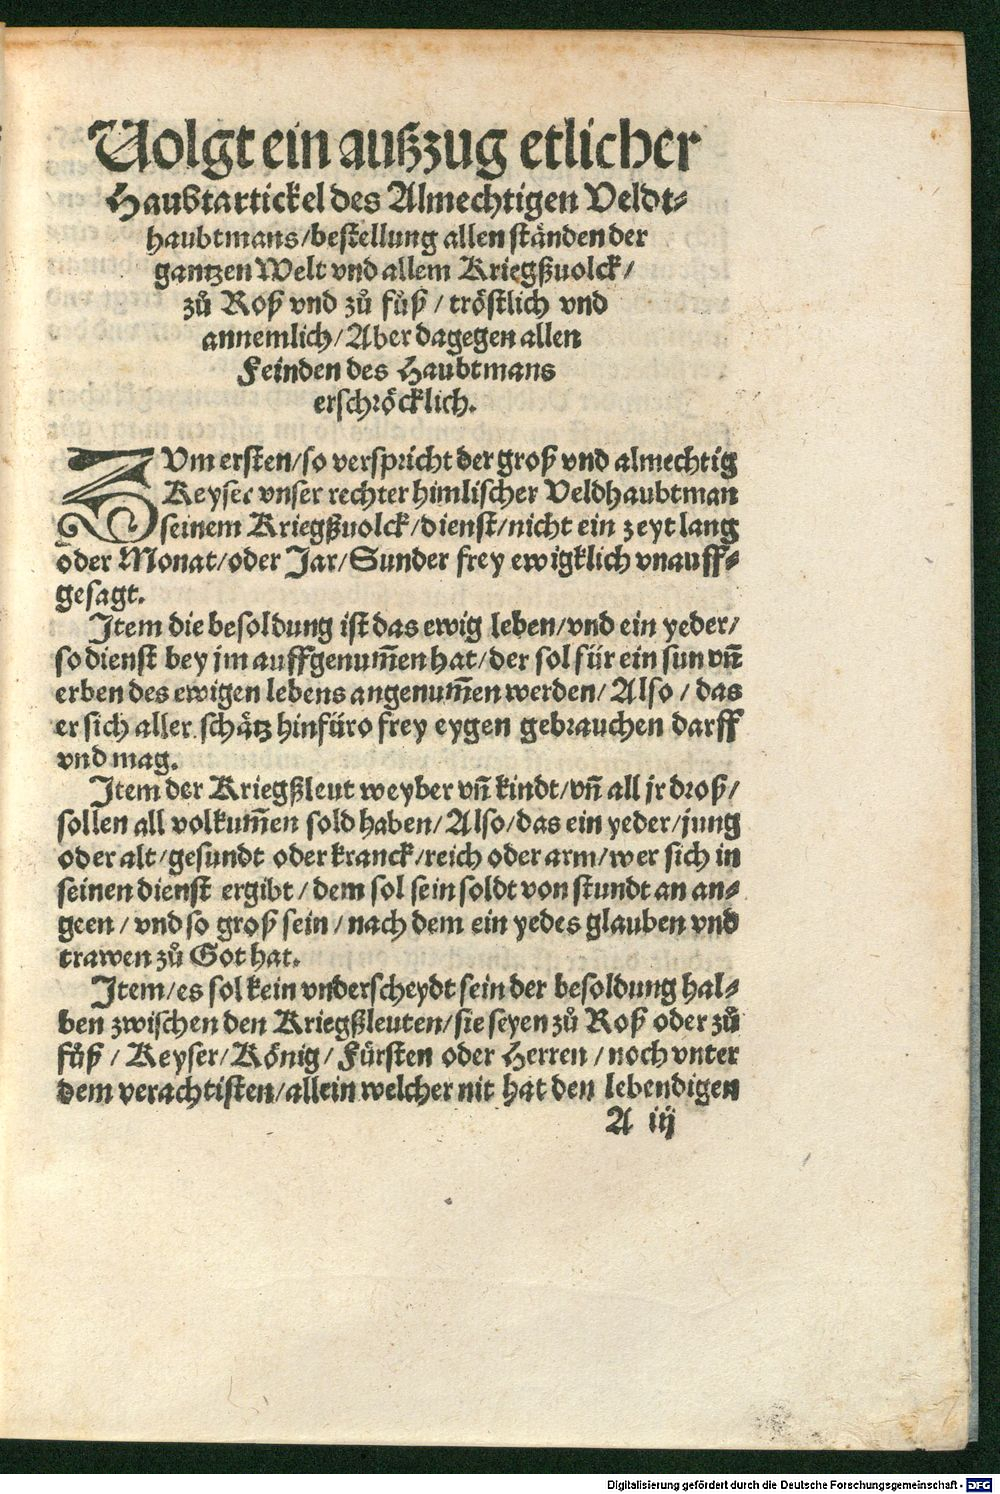 Uolgt ein außzug etlicher
Haubtartickel des Almechtigen Veldt⸗
haubtmans/bestellung allen ständen der
gantzen Welt vnd allem Kriegßuolck/
zů Roß vnd zů fůß / tröstlich vnd
annemlich/Aber dagegen allen
Feinden des Haubtmans
erschröcklich.
ZUm ersten/so verspricht der groß vnd almechtig
Keyser vnser rechter himlischer Veldhaubtman
seinem Kriegßuolck/dienst/nicht ein zeyt lang
oder Monat/oder Jar/Sunder frey ewigklich vnauff⸗
gesagt.
Item die besoldung ist das ewig leben/vnd ein yeder/
so dienst bey jm auffgenum̄en hat/der sol für ein sun vn̄
erben des ewigen lebens angenum̄en werden/Also/das
er sich aller schätz hinfüro frey eygen gebrauchen darff
vnd mag.
Item der Kriegßleut weyber vn̄ kindt/vn̄ all jr droß/
sollen all volkum̄en sold haben/Also/das ein yeder/jung
oder alt/gesundt oder kranck/reich oder arm/wer sich in
seinen dienst ergibt/dem sol sein soldt von stundt an an⸗
geen/vnd so groß sein/nach dem ein yedes glauben vnd
trawen zů Got hat.
Item/es sol kein vnderscheydt sein der besoldung hal⸗
ben zwischen den Kriegßleuten/sie seyen zů Roß oder zů
fůß/Keyser/König/Fürsten oder Herren/noch vnter
dem verachtisten/allein welcher nit hat den lebendigen
A iij
Digitalisierung gefördert durch die Deutsche Forschungsgemeinschaft - DFG